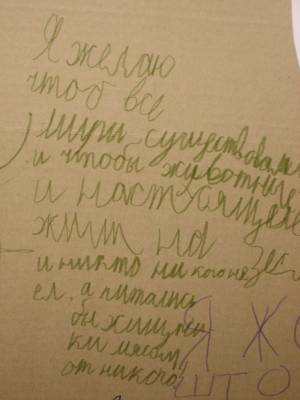 Я желаю
чтоб все
миры существовали
и чтобы животные
и настуящие
жили на Зе
и никто никого не
ел, а питались
бы хищни
ки мясом
от никого
Я Ж
ШТО